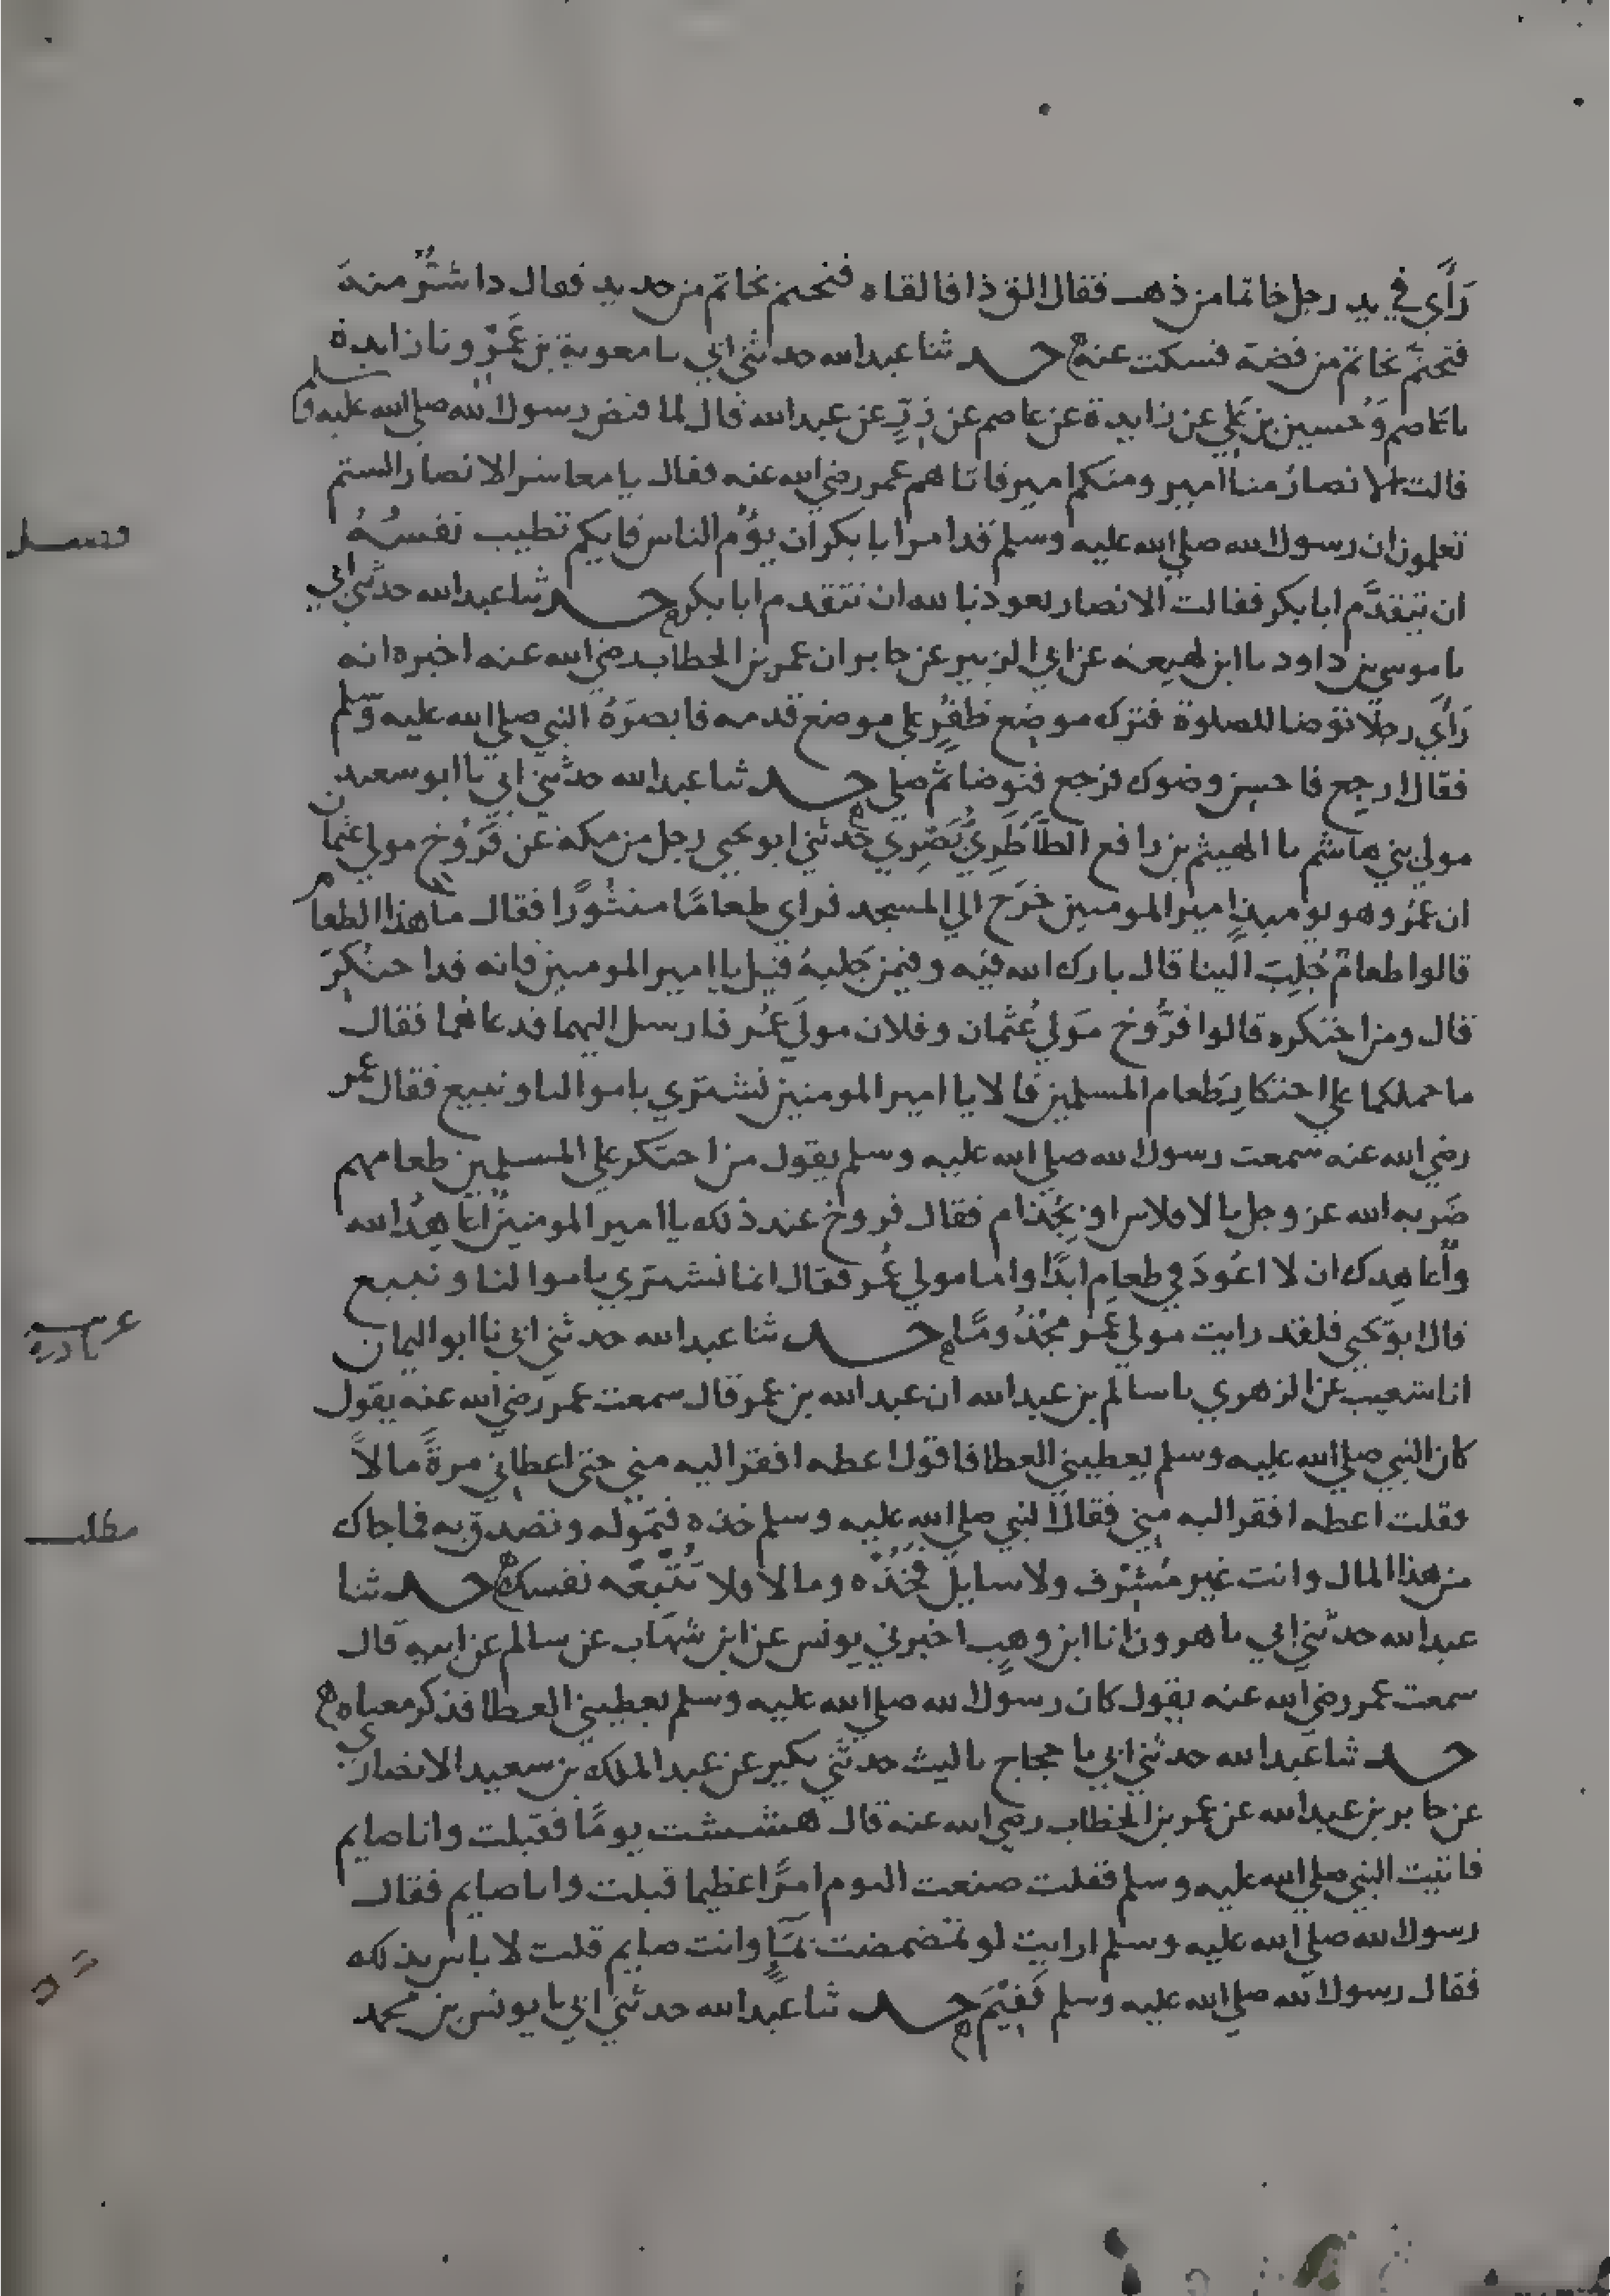 رَأَي في يد رجل خاتما من ذهب فقال الق ذا فالقاه فتختم بخاتم من حديد فقال ذا شَرٌّ منه
فتختّم بخاتم من فضة فسكت عنه حـــد ثنا عبد الله حدثني ابي نا معوية بن عَمرو نا زايدة
نا عاصم وَحُسين بن علي عن زايدة عن عاصم عن زِرٍّ عن عبد الله قال لما قبض رسول الله صلى الله عليه وسلم
قالت الانصارُ منا امير ومنكم امير فاتاهم عمر رضي الله عنه فقال يا معاشر الانصار الستم
تعلمون ان رسول الله صلى الله عليه وسلم قد امر ابا بكر ان يؤم الناس فايكم تطيب نفسُهُ
فصل
ان يتقدَّم ابا بكر فقالت الانصار نعوذ بالله ان نتقدم ابا بكر حـــد ثنا عبد الله حدثني ابي
نا موسى بن داود نا ابن لهيعة عن ابي الزبير عن جابر ان عمر بن الخطاب رضي الله عنه اخبره انه
رَأَي رجلا توضا للصلوة فترك موضِع ظفُرٍ على موضع قدمه فابصرَهُ النبي صلى الله عليه وسلم
فقال ارجع فاحسن وضوك فرجع فتوضا ثم صلى حـــد ثنا عبد الله حدثني ابي نا ابو سعيد
مولى بني هاشم نا الهيثم بن رافع الطَّاطَرِيُّ بَصْرِي حدثني ابو يحيى رجل من مكة عن فَرُّوخ مولى عثمان
ان عمَر وهو يوميذٍ امير المومنين خرَج الى المسجد فراى طعامًا منثُورًا فقال ما هذا الطعام
قالوا طعامٌ جُلِبَ الينا قال بارك الله فيه وفيمن جَلبهُ قيل يا امير المومنين فانه قد احتُكِرَ
قال ومن احتكره قالوا فرُّوخ مَولي عُثمان وفلان مولى عُمر فارسل اليهما فدعاهما فقال
ما حملكما على احتكارِ طعام المسلمين قالا يا امير المومنين نشتري باموالنا ونبيع فقال عمر
رضي الله عنه سمعت رسول الله صلى الله عليه وسلم يقول من احتكر على المسلمين طعامهم
ضَربه الله عز وجل بالافلاس او بجُذام فقال فروخ عند ذلك يا امير المومنين اُعاهِدُ الله
واُعاهدك ان لا اعُودَ في طعامٍ ابدًا واما مولى عُمر فقال انما نشتري باموالنا ونبيع
قال ابو يحيى فلقد رايت مولى عُمر مجْذُومًا حـــد ثنا عبد الله حدثني ابي نا ابو اليمان
انا شعيب عن الزهري نا سالم بن عبد الله ان عبد الله بن عمر قال سمعت عمر رضي الله عنه يقول
كان النبي صلى الله عليه وسلم يعطيني العطا فاقول اعطه افقر اليه مني حتى اعطاني مرةً مالاً
فقلت اعطه افقر اليه مني فقال النبي صلى الله عليه وسلم خذه فتموله وتصدق به فما جاك
مطلب
من هذا المال وانت غير مُشْرِف ولا سايلٍ فخُذْه وما لا فلا تُتْبِعْه نفسك حـــد ثنا
عبد الله حدثني ابي نا هرون انا ابن وهب اخبرني يونس عن ابن شهاب عن سالم عن ابيه قال
سمعت عمر رضي الله عنه يقول كان رسول الله صلى الله عليه وسلم يعطيني العطا فذكر معناه
حـــد ثنا عبد الله حدثني ابي نا حجاج نا ليث حدثني بكير عن عبد الملك بن سعيد الانصاري
عن جابر بن عبد الله عن عمر بن الخطاب رضي الله عنه قال هششت يومًا فقبلت وانا صايم
فاتيت النبي صلى الله عليه وسلم فقلت صنعت اليوم امرًا عظيما قبلت وانا صايم فقال
رسول الله صلى الله عليه وسلم ارايت لو تمضمضت بمَآءٍ وانت صايم قلت لا باس بذلك
فقال رسول الله صلى الله عليه وسلم فَفِيْمَ حـــد ثنا عبد الله حدثني ابي نا يونس بن محمد